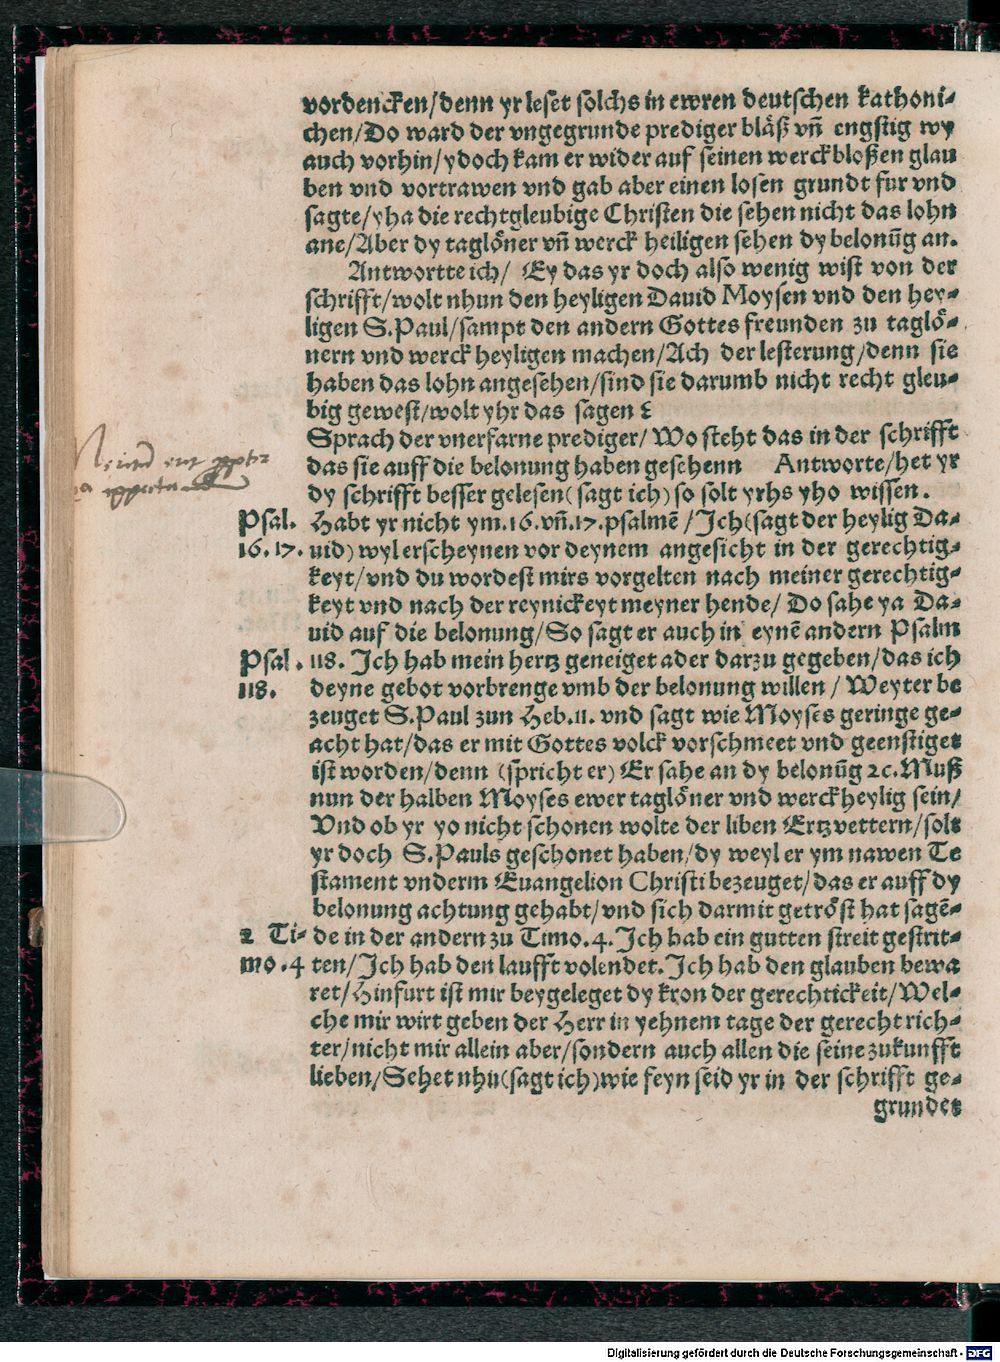 vordencken/denn yr leset solchs in ewren deutschen kathoni-
chen/Do ward der vngegrunde prediger bläß vñ engstig wy
auch vorhin/ydoch kam er wider auf seinen werckbloßen glau
ben vnd vortrawen vnd gab aber einen losen grundt fur vnd
sagte/yha die rechtgleubige Christen die sehen nicht das lohn
ane/Aber dy taglöner vñ werck heiligen sehen dy belonũg an.
Antwortte ich/ Ey das yr doch also wenig wist von der
schrifft/wolt nhun den heyligen Dauid Moysen vnd den hey-
ligen S.Paul/sampt den andern Gottes freunden zu taglö-
nern vnd werck heyligen machen/Ach der lesterung/denn sie
haben das lohn angesehen/sind sie darumb nicht recht gleu-
big gewest/wolt yhr das sagen ?
Sprach der vnerfarne prediger/ Wo steht das in der schrifft
das sie auff die belonung haben gesehenn Antworte/het yr
dy schrifft besser gelesen(sagt ich) so solt yrhs yho wissen.
Psal. Habt yr nicht ym.16.vñ.17.psalmē/Ich(sagt der heylig Da-
16.17. uid) wyl erscheynen vor deynem angesicht in der gerechtig-
keyt/vnd du wordest mirs vorgelten nach meiner gerechtig-
keyt vnd nach der reynickeyt meyner hende/ Do sahe ya Da-
uid auf die belonung/So sagt er auch in eynē andern Psalm
Psal. 118. Ich hab mein hertz geneiget ader darzu gegeben/das ich
118. deyne gebot vorbrenge vmb der belonung willen/ Weyter be
zeuget S.Paul zun Heb.11. vnd sagt wie Moyses geringe ge-
acht hat/das er mit Gottes volck vorschmeet vnd geenstiget
ist worden/denn (spricht er) Er sahe an dy belonũg ꝛc. Muß
nun der halben Moyses ewer taglöner vnd werckheylig sein/
Vnd ob yr yo nicht schonen wolte der liben Ertzvettern/solt
yr doch S.Pauls geschonet haben/dy weyl er ym nawen Te
stament vnderm Euangelion Christi bezeuget/das er auff dy
belonung achtung gehabt/vnd sich darmit getröst hat sagē-
2 Ti- de in der andern zu Timo.4. Ich hab ein gutten streit gestrit-
mo.4 ten/Ich hab den laufft volendet. Ich hab den glauben bewa
ret/Hinfurt ist mir beygeleget dy kron der gerechtickeit/Wel-
che mir wirt geben der Herr in yehnem tage der gerecht rich-
ter/nicht mir allein aber/sondern auch allen die seine zukunfft
lieben/Sehet nhũ(sagt ich)wie feyn seid yr in der schrifft ge-
grundet
Digitalisierung gefördert durch die Deutsche Forschungsgemeinschaft - DFG